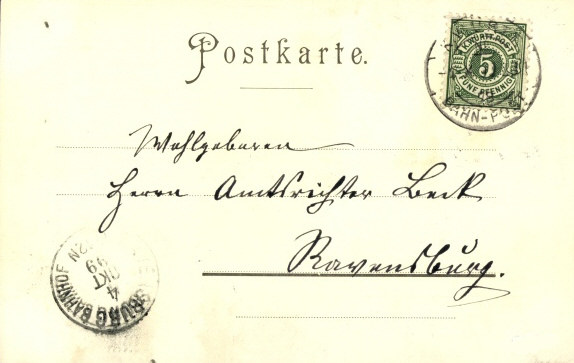 Postkarte.
K. WÜRTT. POST
5
FÜNF PFENNIG
BAHN-POST
Wohlgeboren
Herrn Amtsrichter Beck
Ravensburg.
BAHNHOF
4
OKT
99